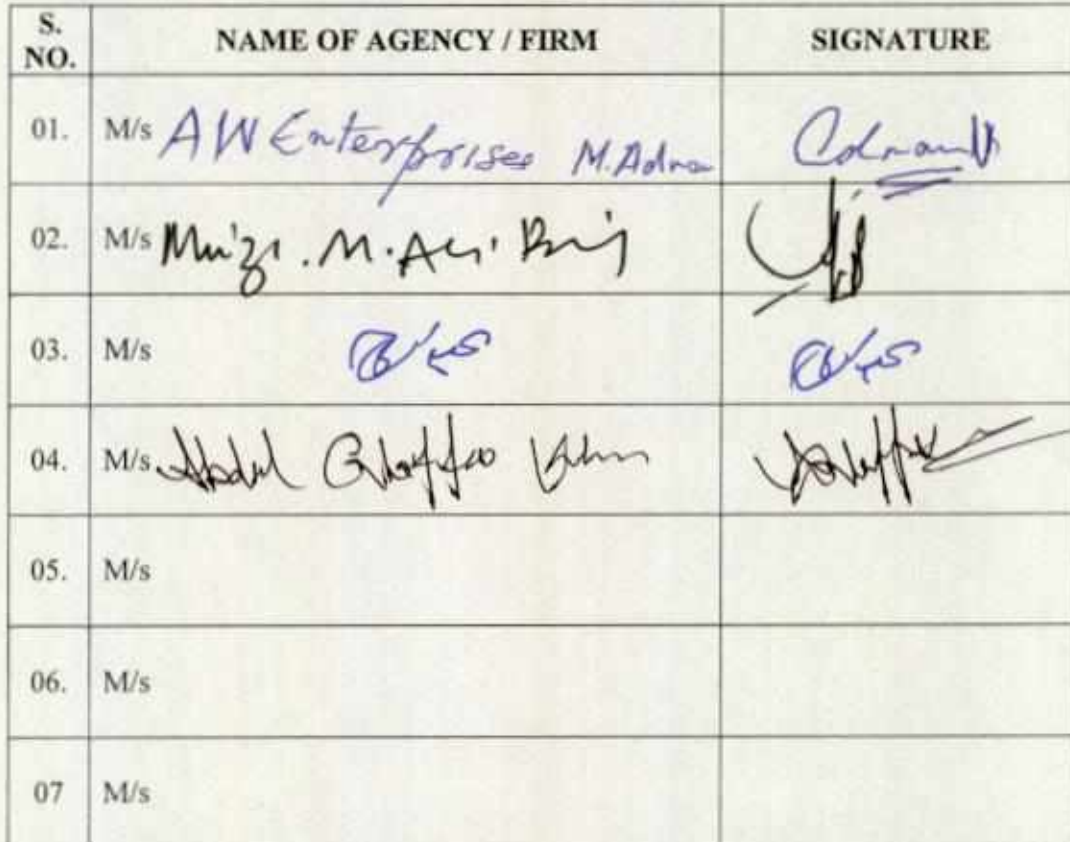 S. NO. NAME OF AGENCY / FIRM SIGNATURE
01. M/s AW Enterprises M. Adnan
02. M/s M. Ali
03. M/s
04. M/s Abdul Ghaffar Khan
05. M/s
06. M/s
07 M/s